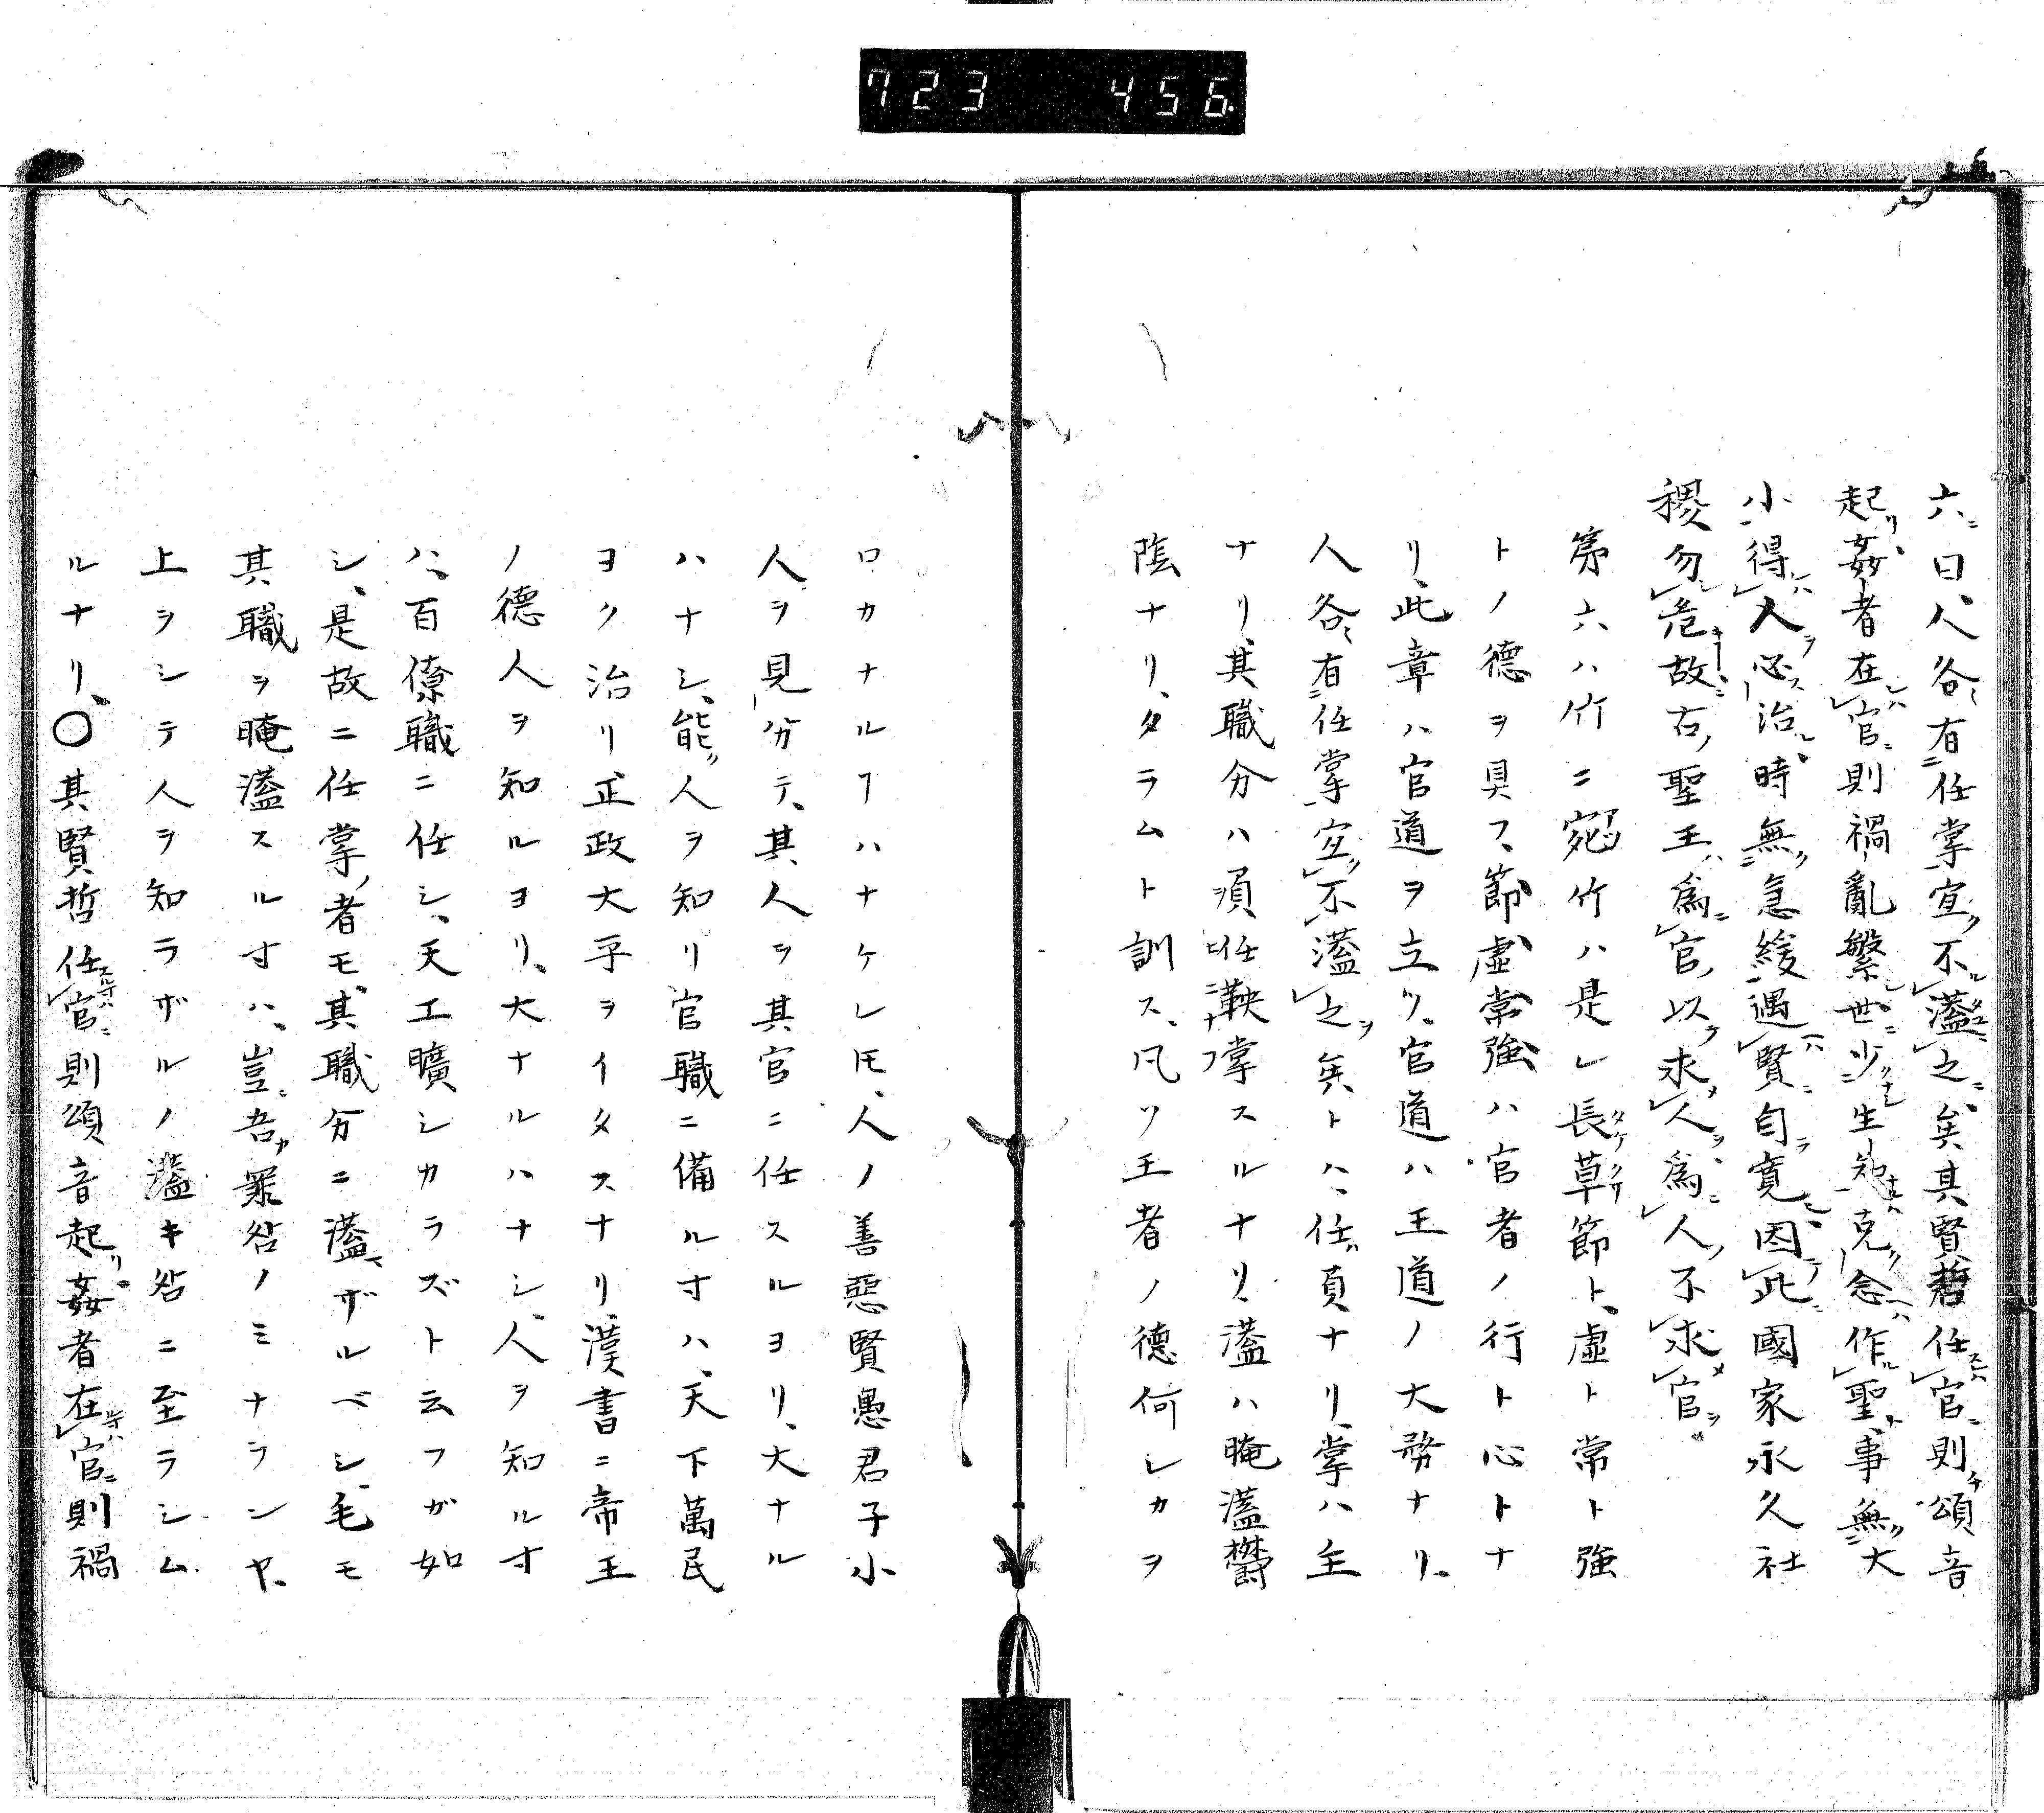 723 456
六曰人各有任掌宜不濫之矣其賢哲任官則頌音
起姧者在官則禍亂繁世少生知克念作聖事無大
小得人必治時無急緩遇賢自寛因此國家永久社
稷勿危故古聖王為官以求人為人不求官
第六ハ竹ニ宛ツ竹ハ是レ長草節ト虚ト常ト強
トノ德ヲ具フ節虚常強ハ官者ノ行ト心トナ
リ、此章ハ官道ヲ立ツ、官道ハ王道ノ大務ナリ、
人各有任掌宜不濫之矣トハ、任ハ負ナリ、掌ハ主
ナリ、其職分ハ須任鞅掌スルナリ、濫ハ晻濫欝
陰ナリ、タラムト訓ス、凡ソ王者ノ德何シカヲ
ロカナルヿハナケレ𪜈、人ノ善惡賢愚君子小
人ヲ見分テ、其人ヲ其官ニ任スルヨリ、大ナル
ハナシ、能人ヲ知リ官職ニ備ルヰハ、天下萬民
ヨク治リ正政大平ヲイタスナリ、漢書ニ帝王
ノ德人ヲ知ルヨリ、大ナルハナシ、人ヲ知ル寸
ハ、百僚職ニ任シ、天工曠シカラズト云フガ如
シ、是故ニ任掌者モ、其職分ニ濫ザルベシ、毛モ
其職ヲ晻濫スル寸ハ、豈吾罪咎ノミナランヤ、
上ヲシテ人ヲ知ラザルノ濫キ咎ニ至ラシム
ルナリ、〇其賢哲任官則頌音起姧者在官則禍